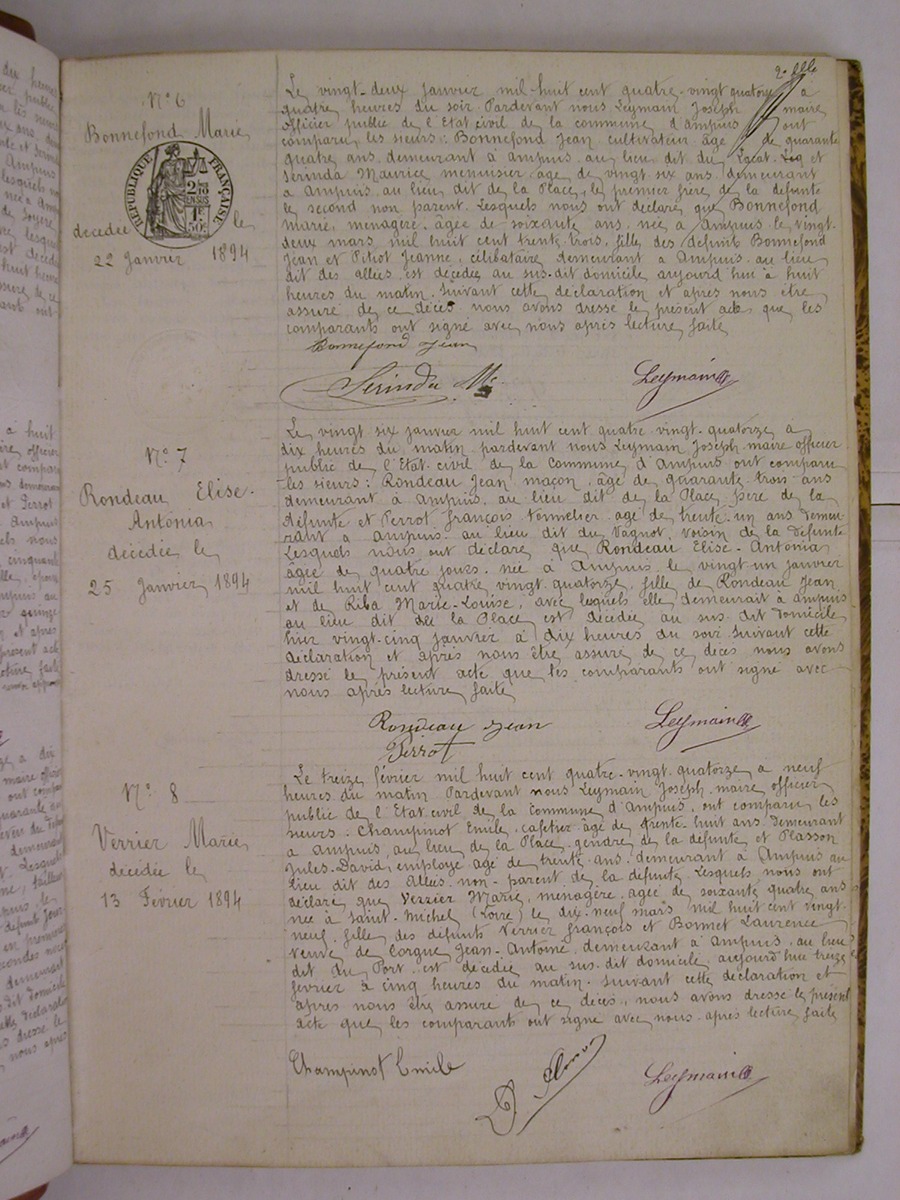 2e flle
N° 6
Bonnefond Marie
RÉPUBLIQUE FRANÇAISE
2/10 EN SUS
1F 50c
décédée le
22 Janvier 1894
Le vingt-deux janvier mil-huit cent quatre-vingt quatorze à
quatre heures du soir Pardevant nous Leymain Joseph maire
officier public de l'Etat civil de la commune d'Ampuis ont
comparu les sieurs : Bonnefond Jean cultivateur âgé de quarante
quatre ans demeurant à ampuis au lieu dit du et
Serinda Maurice menuisier âgé de vingt six ans demeurant
à Ampuis au lieu dit de la Place, le premier frère de la défunte
le second non parent. Lesquels nous ont déclaré que Bonnefond
Marie, menagère âgée de soixante ans née à Ampuis le vingt-
deux mars mil huit cent trente trois, fille des défunts Bonnefond
Jean et Pitiot Jeanne, célibataire demeurant à Ampuis au lieu
dit des allées est décédée au sus-dit domicile aujourd'hui à huit
heures du matin. Suivant cette déclaration et après nous être
assuré de ce décès nous avons dressé le présent acte que les
comparants ont signé avec nous après lecture faite
Bonnefond Jean
Serinda M. Leymain
N° 7
Rondeau Elise-
Antonia
décédée le
25 Janvier 1894
Le vingt six janvier mil huit cent quatre-vingt-quatorze à
dix heures du matin pardevant nous Leymain Joseph maire officier
public de l'Etat-civil de la Commune d'Ampuis ont comparu
les sieurs : Rondeau Jean maçon, âgé de quarante-trois-ans
demeurant à Ampuis au lieu dit de la Place père de la
défunte et Perrot François tonnelier âgé de trente-un ans demeu-
rant à Ampuis au lieu dit du Vagnot, voisin de la défunte
Lesquels nous ont déclaré que Rondeau Elise-Antonia
âgée de quatre jours née à Ampuis le vingt-un janvier
mil huit cent quatre vingt-quatorze, fille de Rondeau Jean
et de Riba Marie-Louise, avec lesquels elle demeurait à ampuis
au lieu dit de la Place est décédée au sus-dit domicile
hier vingt-cinq janvier à dix heures du soir Suivant cette
déclaration et après nous être assuré de ce décès nous avons
dressé le présent acte que les comparants ont signé avec
nous après lecture faite
Rondeau Jean Leymain
Perrot
N° 8
Verrier Marie
décédée le
13 Février 1894
Le treize février mil huit cent quatre-vingt-quatorze à neuf
heures du matin Pardevant nous Leymain Joseph maire officier
public de l'Etat-civil de la Commune d'Ampuis, ont comparu les
sieurs : Champinot Emile, cafetier âgé de trente-huit ans demeurant
à ampuis au lieu de la Place, gendre de la défunte et Plasson
Jules-David employé âgé de trente-ans demeurant à Ampuis au
lieu dit des Allées non-parent de la défunte. Lesquels nous ont
déclaré que Verrier Marie, menagère, âgée de soixante quatre ans
née à Saint-Michel (Loire) le dix-neuf mars mil huit cent vingt-
neuf fille des défunts Verrier François et Bonnet Laurence
veuve de Corque Jean-Antoine, demeurant à Ampuis, au lieu
dit du Port, est décédée au sus-dit domicile, aujourd'hui treize
février à cinq heures du matin. Suivant cette déclaration et
après nous être assuré de ce décès, nous avons dressé le présent
acte que les comparant ont signé avec nous après lecture faite
Champinot Emile Leymain